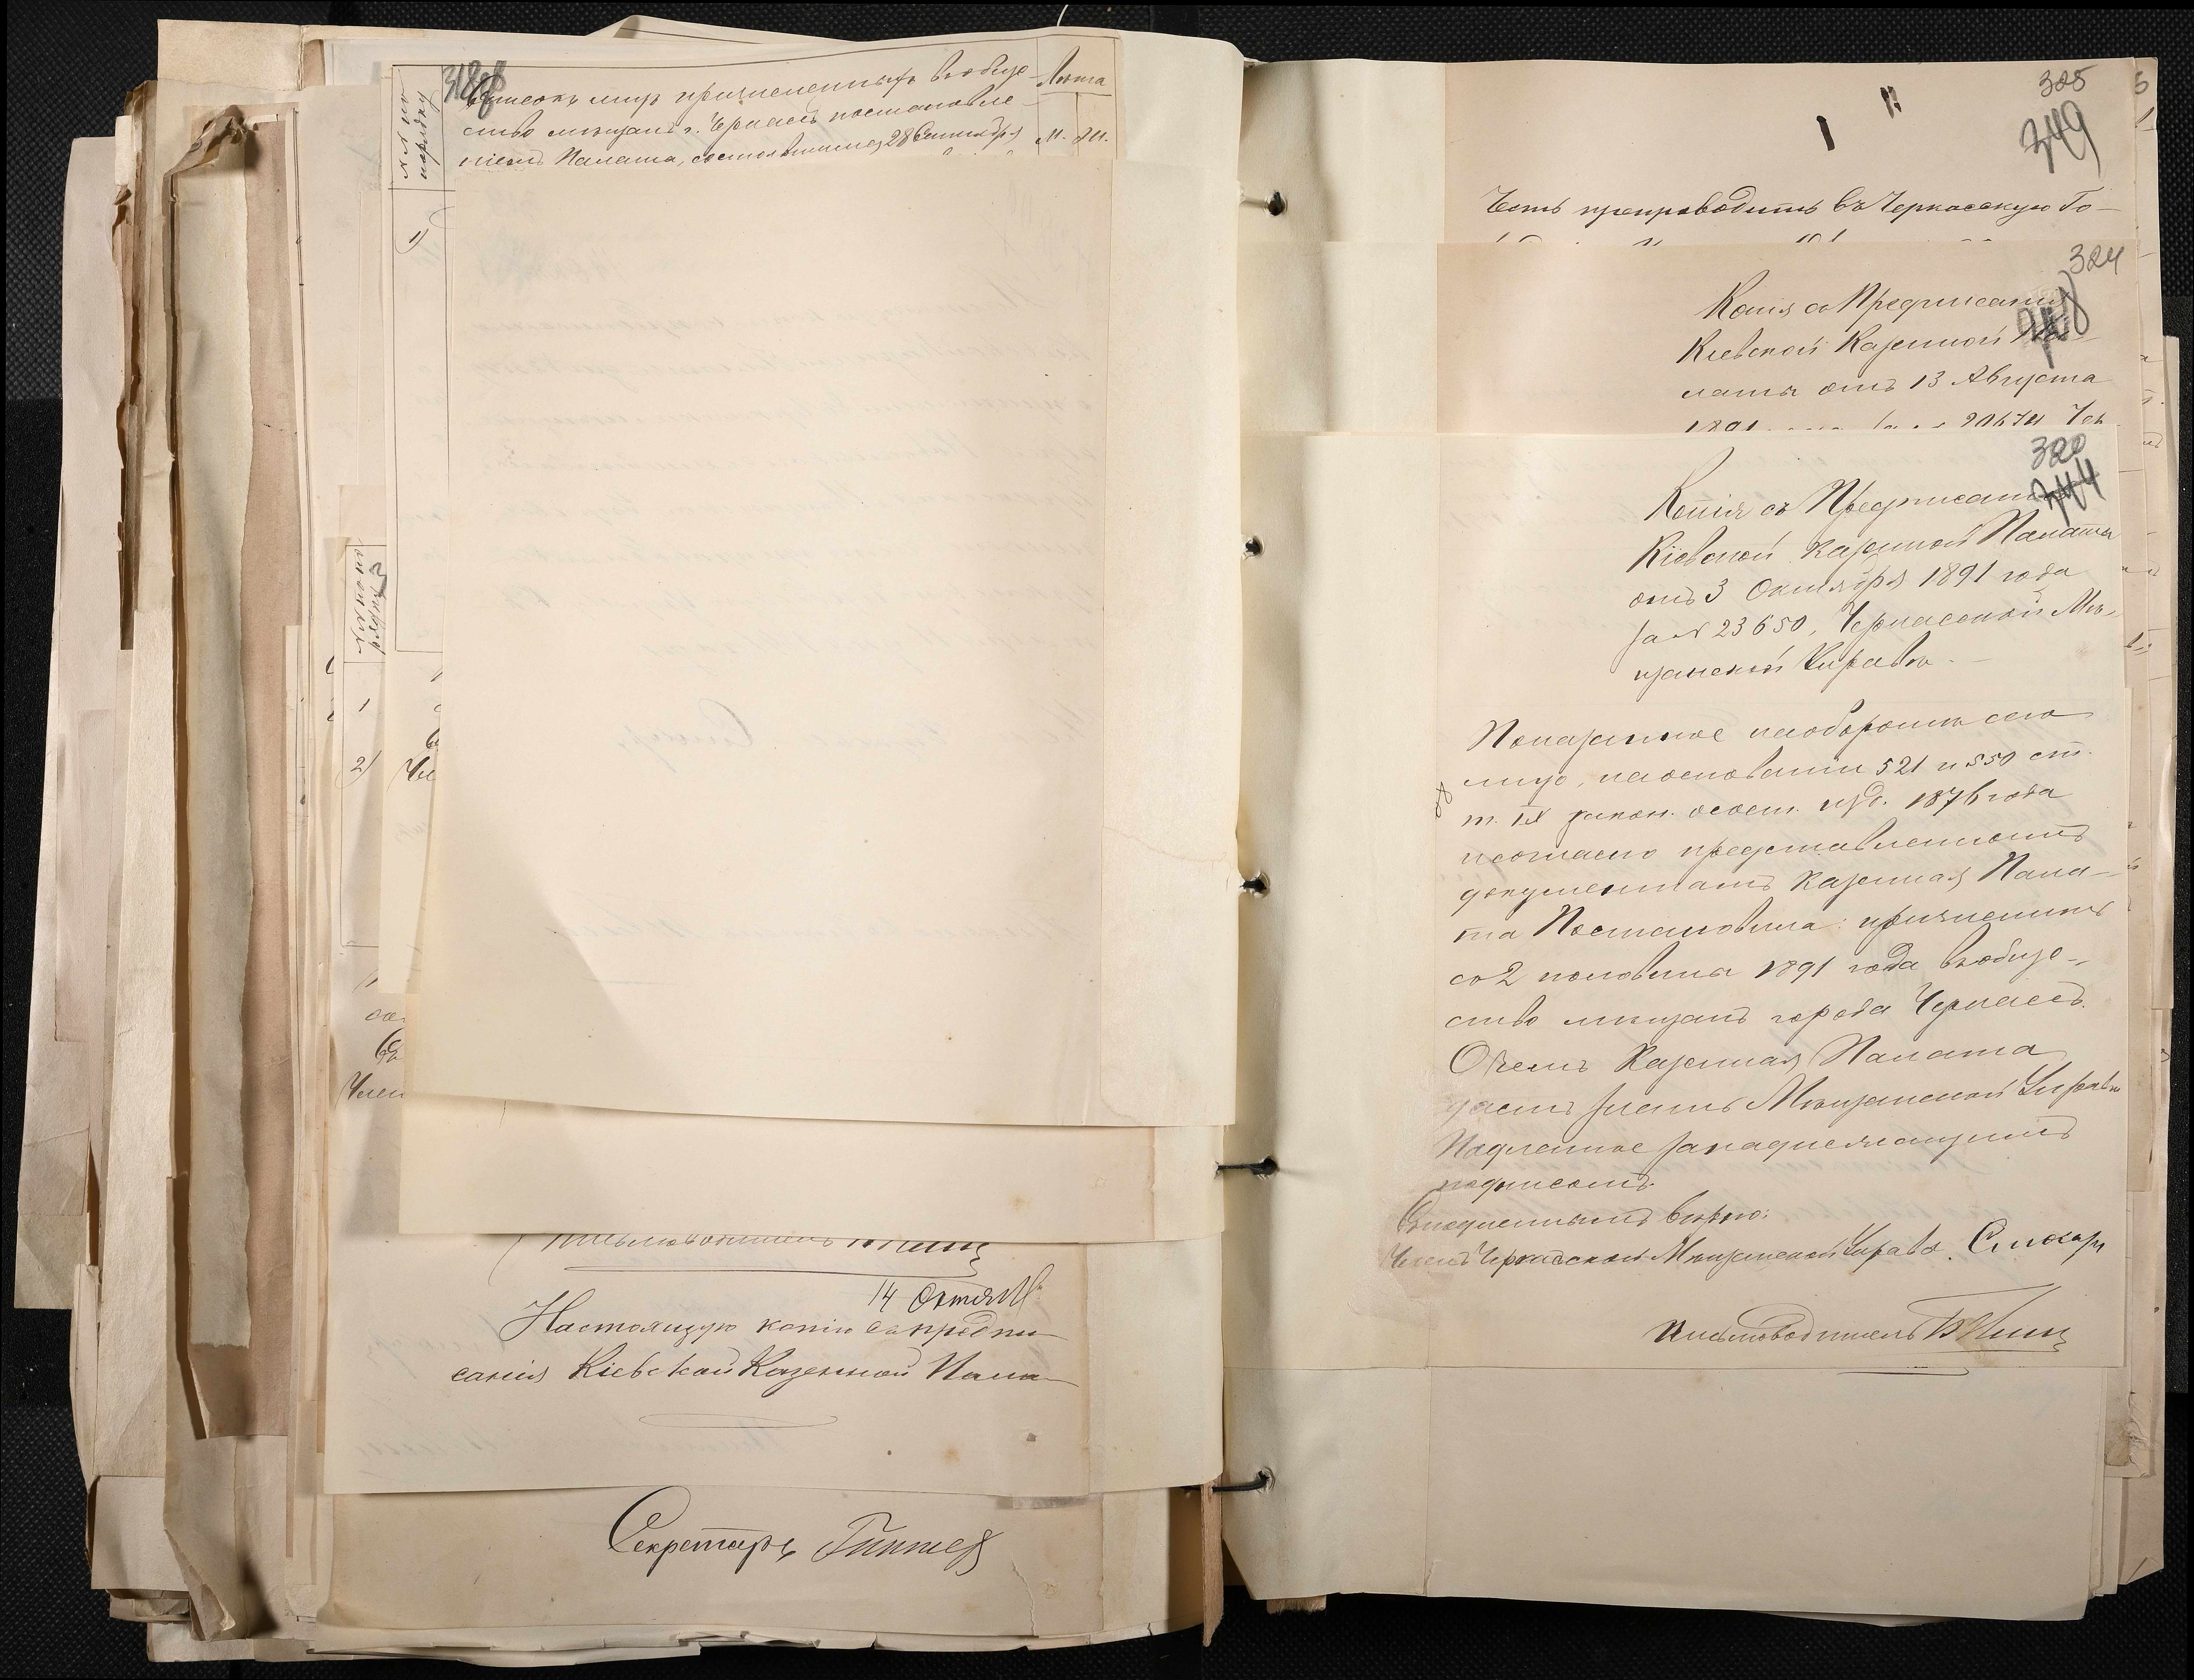 318 об
Списокъ лицъ причисленныхъ въ обще-
ство мѣщанъ г. Черкасъ постановле-
ніемъ Палаты, состоявшимся 28 Сентября
Лѣта
М. Ж.
№№ по
порядку
1)
№№ по
порядку
1
2)
Чле
Член
14 Октяб.
Настоящую копію съ предпи-
санія Кіевской Казенной Пала-
Секретарь
325
349
Честь препроводить въ Черкасскую Го-
324
348
Копія съ Предписанія
Кіевской Казенной Па-
латы отъ 13 Августа
320
344
Копія съ Предписанія
Кіевской Казенной Палаты
отъ 3 Октября 1891 года
за № 23650, Черкасской Мѣ-
щанской Управѣ.
Показанное наоборотѣ сего
лицо, на основаніи 521 и 550 ст.
т. IX закон. о сост. изд. 1876 года
и согласно представленнымъ
документамъ Казенная Пала-
та Постановила: причислить
со 2 половины 1891 года въ обще-
ство мѣщанъ города Черкасъ.
О чемъ Казенная Палата
даетъ знать Мѣщанской Управѣ
Подленное за надлежащимъ
подписомъ.
Съ подленнымъ вѣрно:
Членъ Черкасской Мѣщанской Управы
Письмоводитель